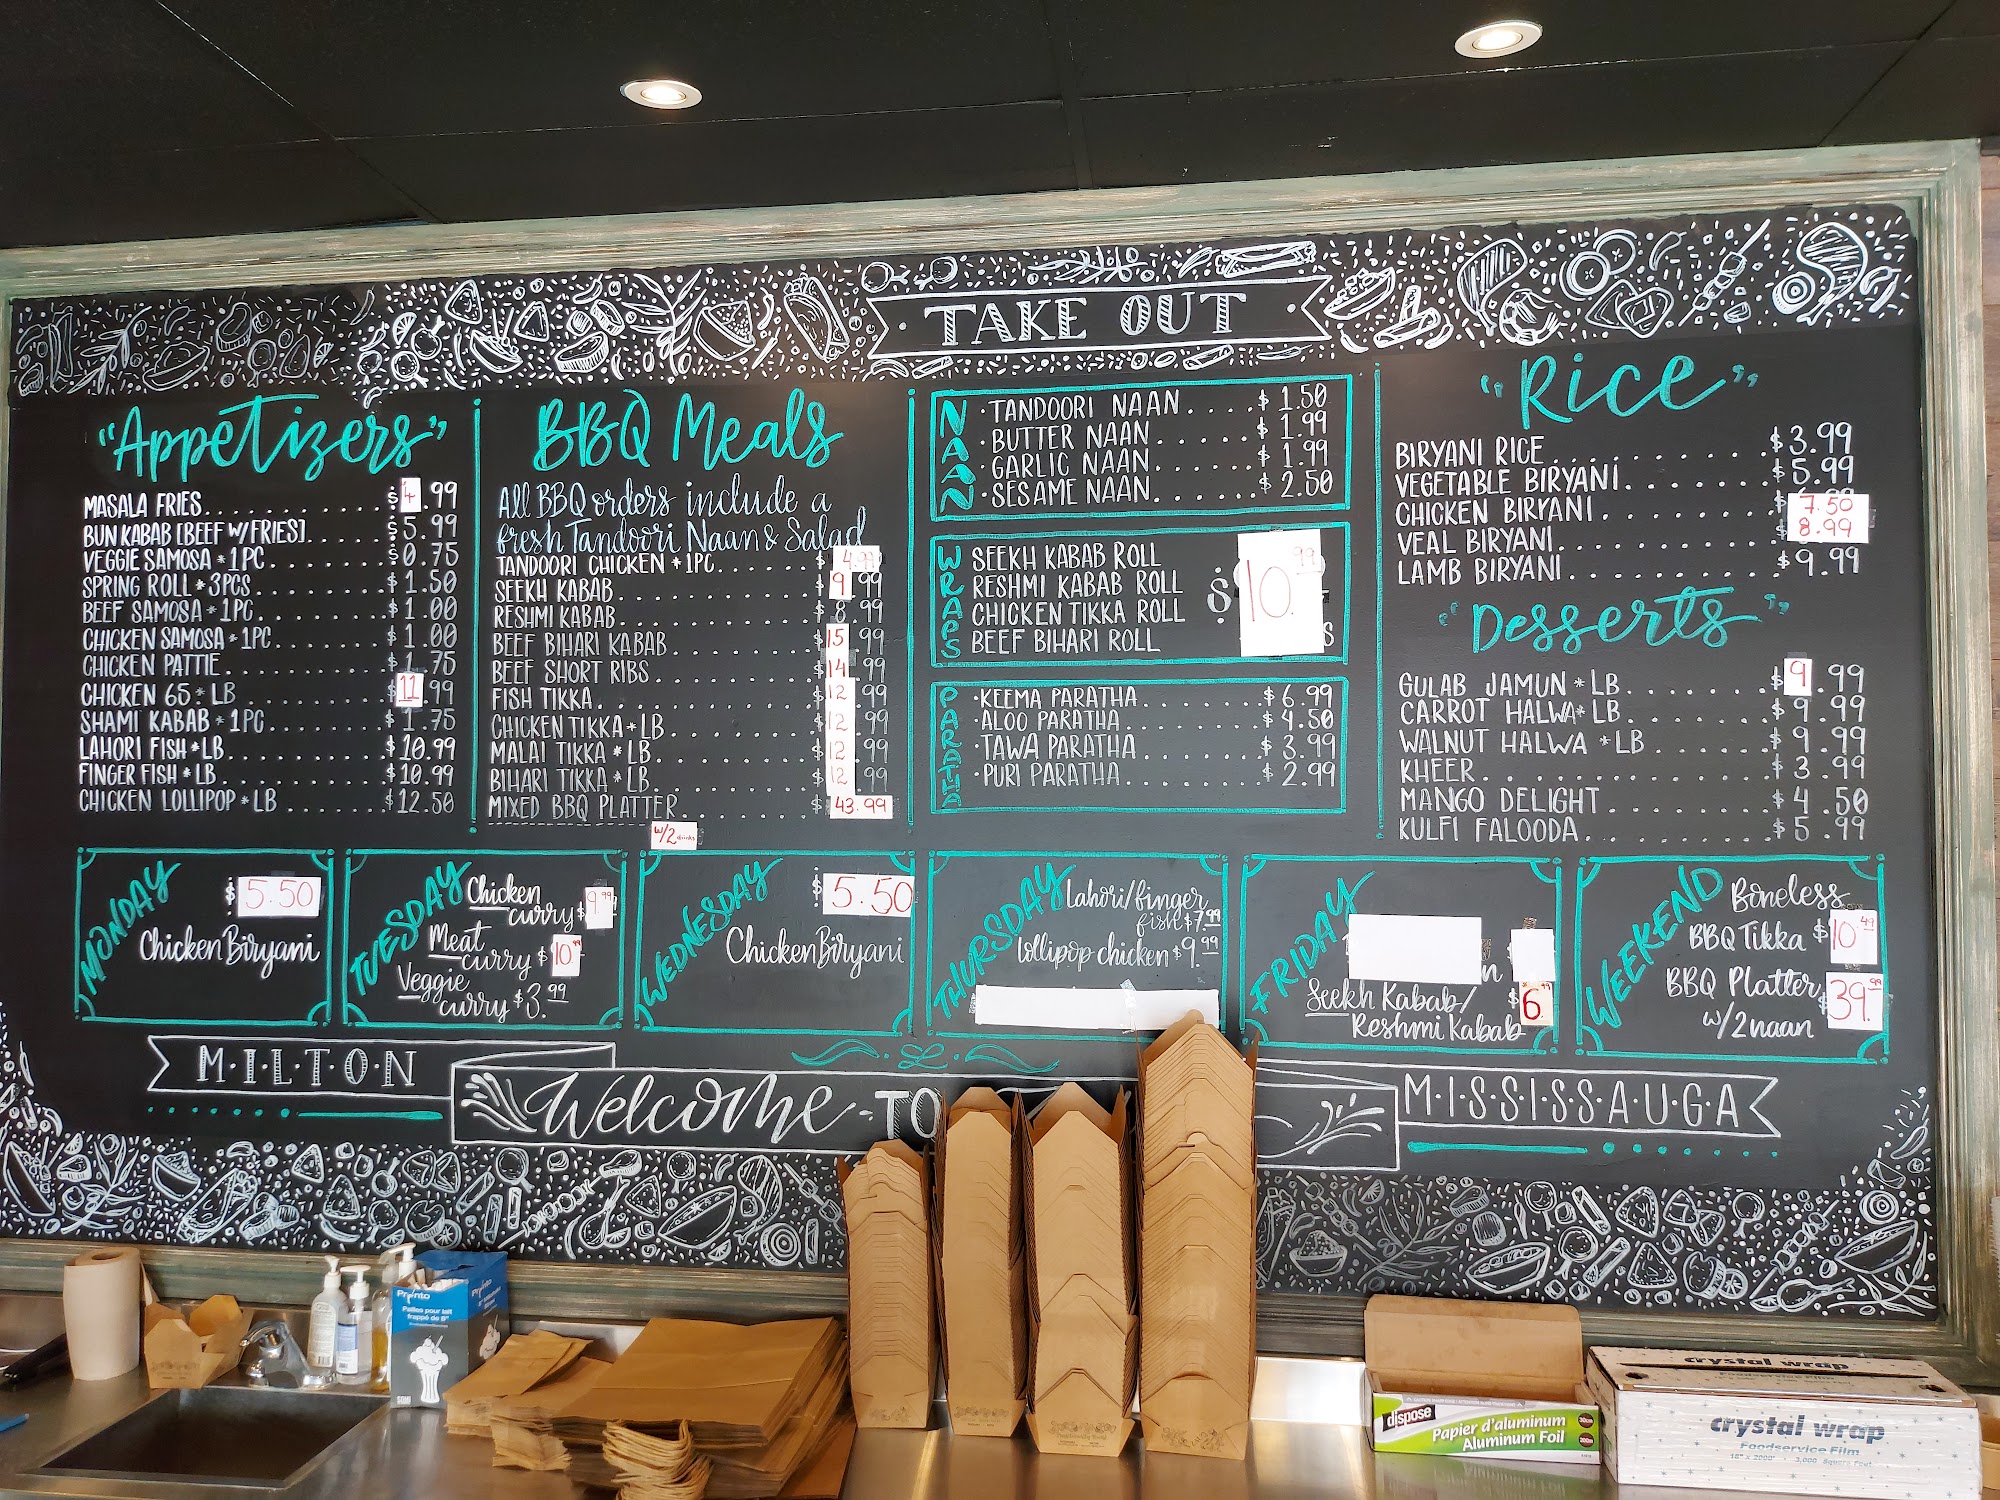 TAKE OUT
"Appetizers"
MASALA FRIES . . . . . . . . . . $4.99
BUN KABAB [BEEF W/FRIES] . . . . . $5.99
VEGGIE SAMOSA * 1PC . . . . . . . $0.75
SPRING ROLL * 3PCS . . . . . . . . $1.50
BEEF SAMOSA * 1PC . . . . . . . . $1.00
CHICKEN SAMOSA * 1PC . . . . . . . $1.00
CHICKEN PATTIE . . . . . . . . . $1.75
CHICKEN 65 * LB . . . . . . . . . $11.99
SHAMI KABAB * 1PC . . . . . . . . $1.75
LAHORI FISH * LB . . . . . . . . . $10.99
FINGER FISH * LB . . . . . . . . . $10.99
CHICKEN LOLLIPOP * LB . . . . . . $12.50
BBQ Meals
All BBQ orders include a
fresh Tandoori Naan & Salad
TANDOORI CHICKEN * 1PC . . . . . . $4.99
SEEKH KABAB . . . . . . . . . . $9.99
RESHMI KABAB . . . . . . . . . . $8.99
BEEF BIHARI KABAB . . . . . . . . $15.99
BEEF SHORT RIBS . . . . . . . . . $14.99
FISH TIKKA . . . . . . . . . . . $12.99
CHICKEN TIKKA * LB . . . . . . . . $12.99
MALAI TIKKA * LB . . . . . . . . . $12.99
BIHARI TIKKA * LB . . . . . . . . $12.99
MIXED BBQ PLATTER . . . . . . . . $43.99
w/2 drinks
NAAN
· TANDOORI NAAN . . . . $1.50
· BUTTER NAAN . . . . . . $1.99
· GARLIC NAAN . . . . . . $1.99
· SESAME NAAN . . . . . . $2.50
WRAPS
SEEKH KABAB ROLL
RESHMI KABAB ROLL
CHICKEN TIKKA ROLL
BEEF BIHARI ROLL
$10.99
PARATHA
· KEEMA PARATHA . . . . . . . $6.99
· ALOO PARATHA . . . . . . . $4.50
· TAWA PARATHA . . . . . . . $3.99
· PURI PARATHA . . . . . . . $2.99
"Rice"
BIRYANI RICE . . . . . . . . . . $3.99
VEGETABLE BIRYANI . . . . . . . . $5.99
CHICKEN BIRYANI . . . . . . . . . $7.50
VEAL BIRYANI . . . . . . . . . . $8.99
LAMB BIRYANI . . . . . . . . . . $9.99
"Desserts"
GULAB JAMUN * LB . . . . . . . . $9.99
CARROT HALWA * LB . . . . . . . . $9.99
WALNUT HALWA * LB . . . . . . . . $9.99
KHEER . . . . . . . . . . . . . $3.99
MANGO DELIGHT . . . . . . . . . . $4.50
KULFI FALOODA . . . . . . . . . . $5.99
MONDAY
$5.50
Chicken Biryani
TUESDAY
Chicken
curry $9.99
Meat
curry $10.99
Veggie
curry $3.99
WEDNESDAY
$5.50
Chicken Biryani
THURSDAY
Lahori/finger
fish $7.99
lollipop chicken $9.99
FRIDAY
Seekh Kabab/
Reshmi Kabab
6.99
WEEKEND
Boneless
BBQ Tikka $10.49
BBQ Platter $39.99
w/2 naan
M·I·L·T·O·N
Welcome - TO
M·I·S·S·I·S·S·A·U·G·A
Pronto
Pailles pour lait
frappé de 8"
dispose
Papier d'aluminum
Aluminum Foil
crystal wrap
crystal wrap
Foodservice Film
18" x 2000' · 3,000 Square Feet